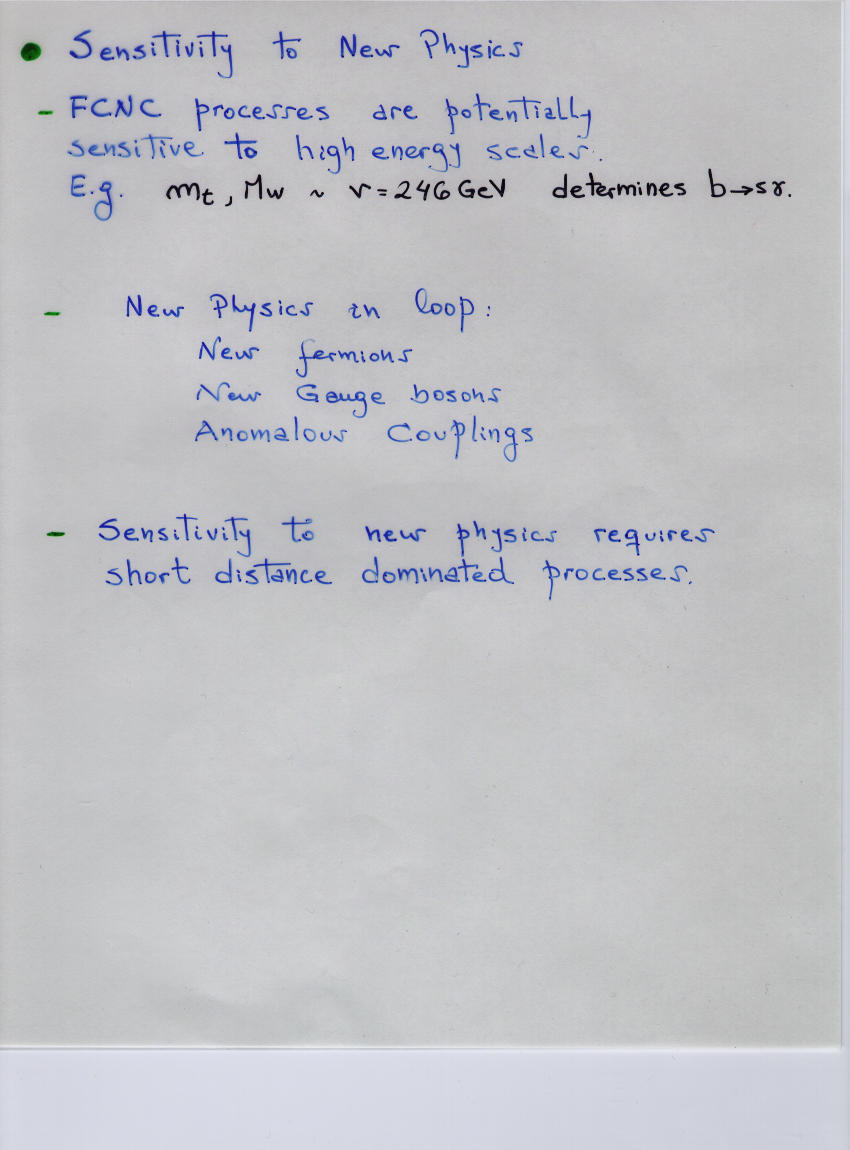 • Sensitivity to New Physics
- FCNC processes are potentially
sensitive to high energy scales.
E.g. mt, Mw ~ v = 246 GeV determines b→sγ.
- New Physics in loop:
New fermions
New Gauge bosons
Anomalous Couplings
- Sensitivity to new physics requires
short distance dominated processes.